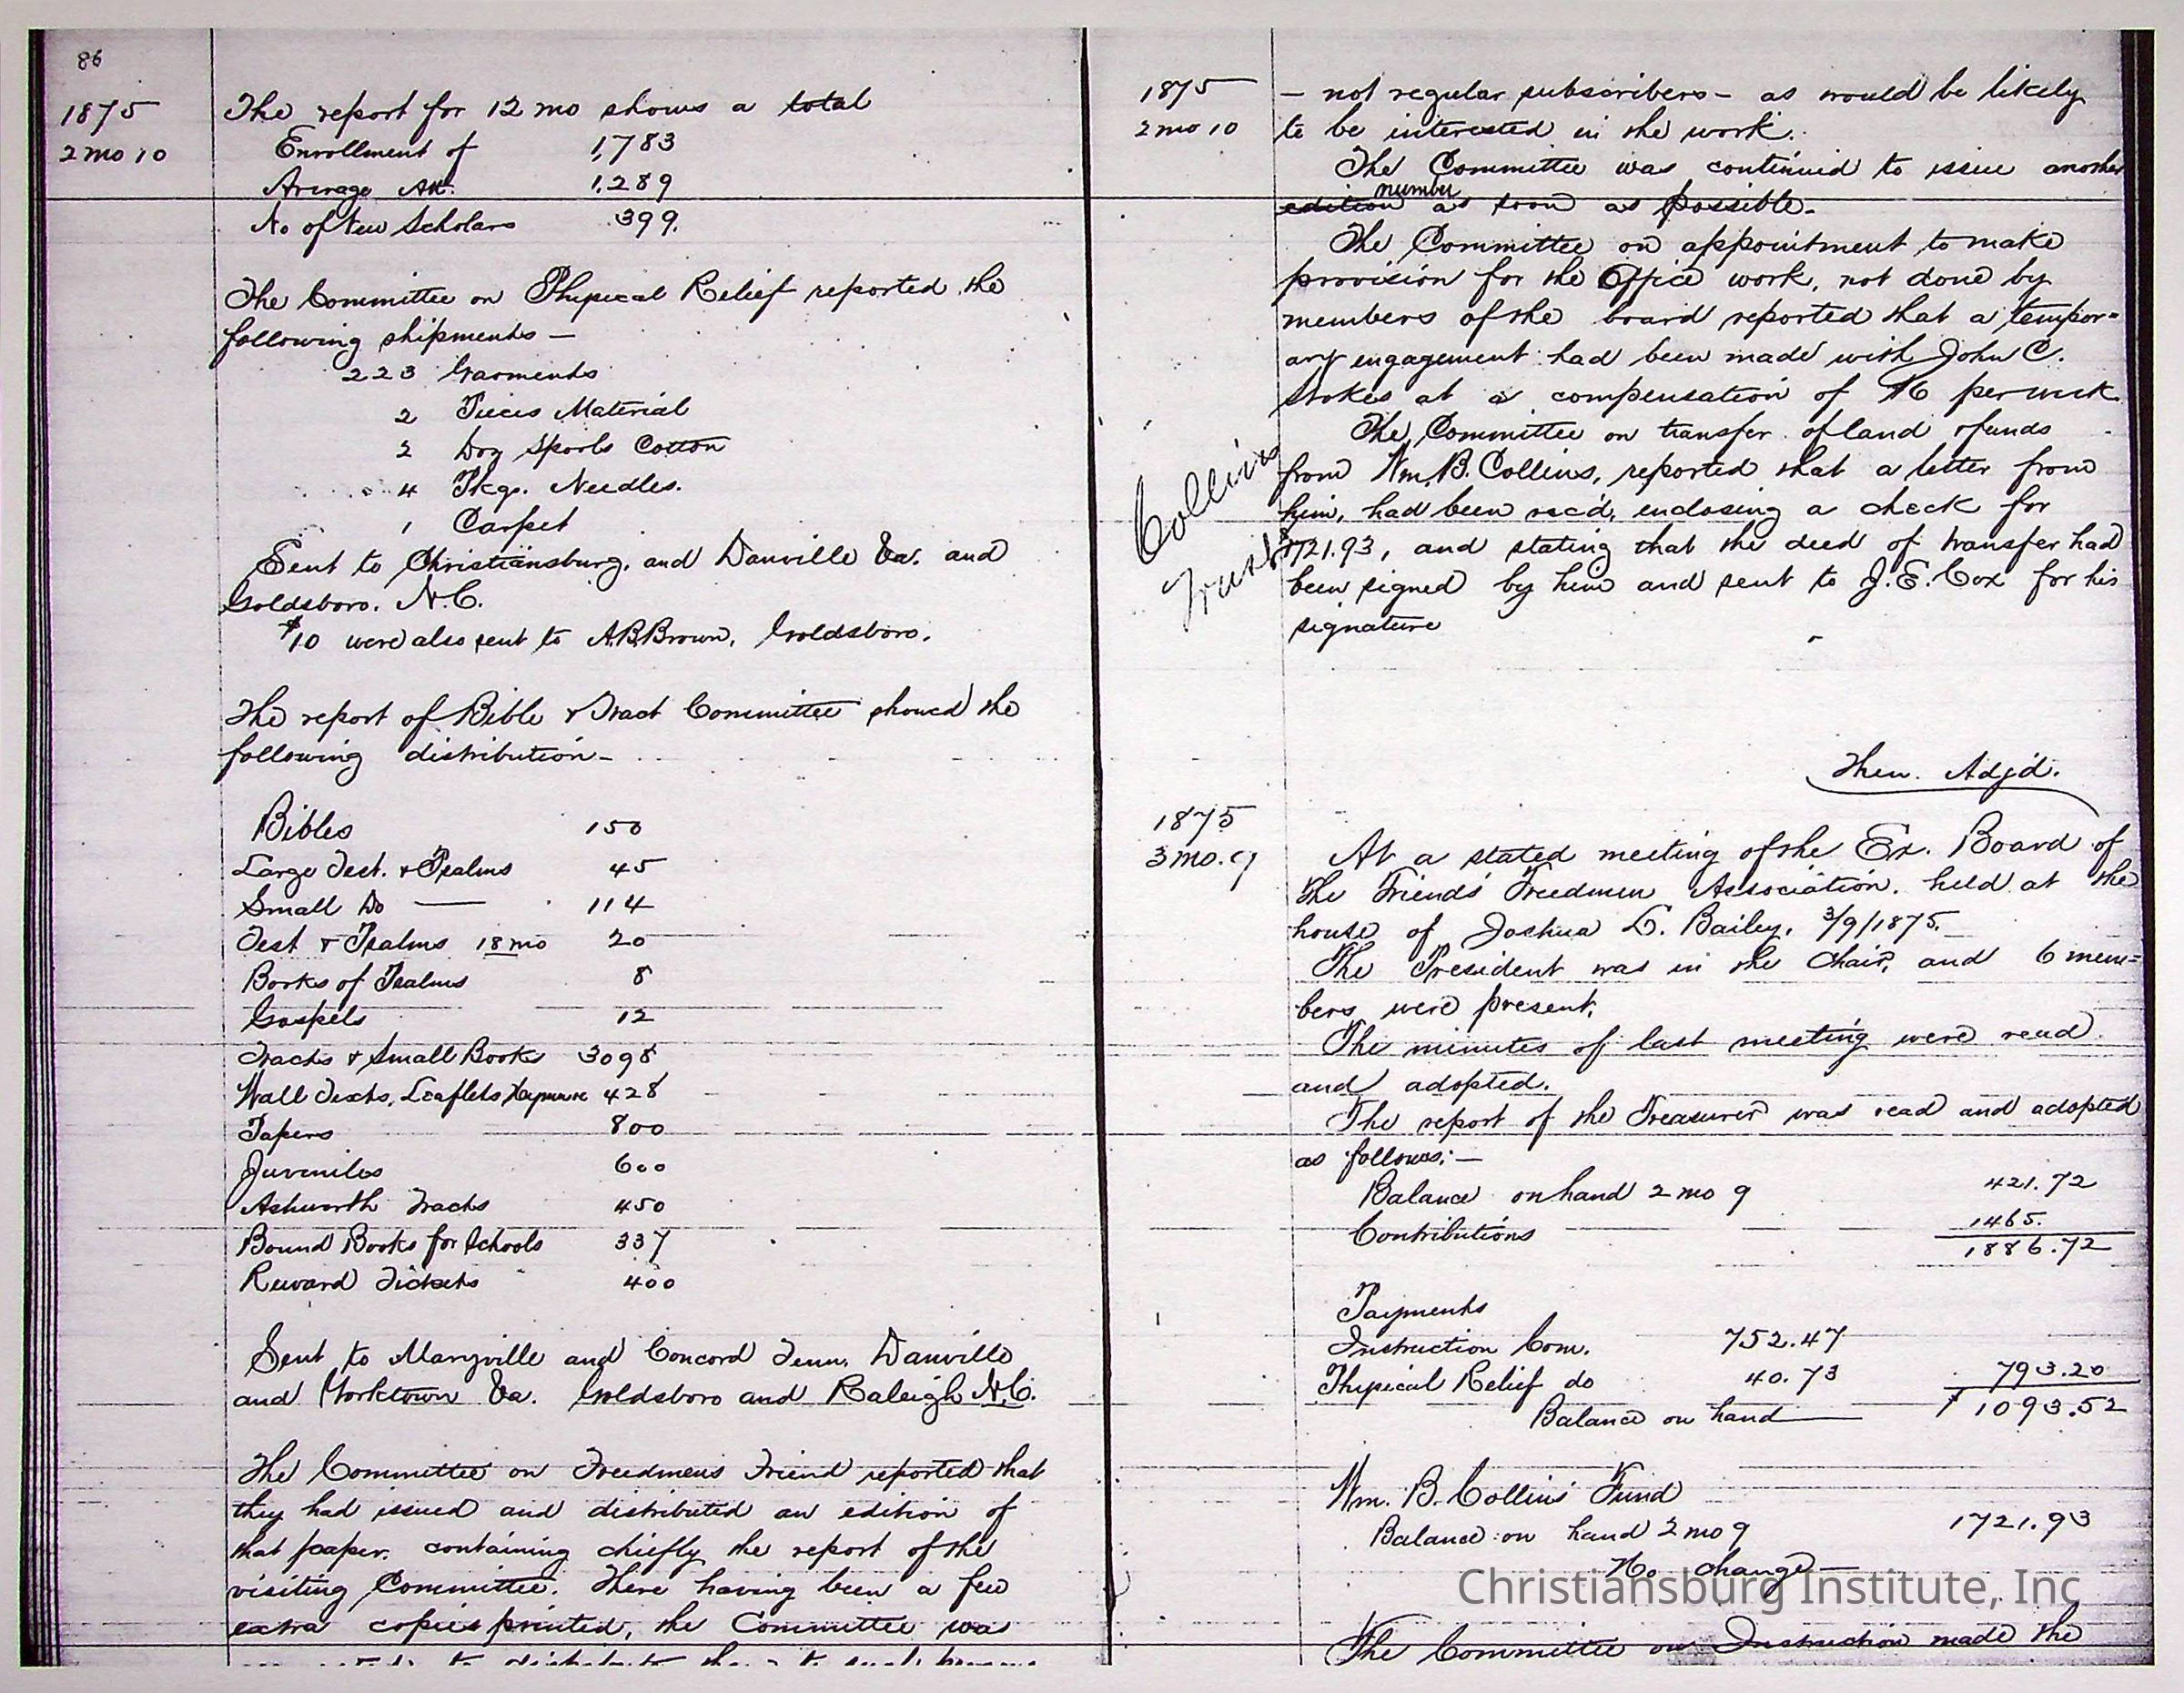 86
1875
2 mo 10
The report for 12 mo shows a total
Enrollment of 1,783
Average Att. 1,289
No of New Scholars 399.
The Committee on Physical Relief reported the
following shipments —
223 Garments
2 Pieces Material
2 Doz Spools Cotton
4 Pkgs. Needles.
1 Carpet
Sent to Christiansburg, and Danville Va. and
Goldsboro. N.C.
$10 were also sent to A.B.Brown, Goldsboro.
The report of Bible & Tract Committee showed the
following distribution —
Bibles 150
Large Test. & Psalms 45
Small Do — 114
Test & Psalms 18 mo 20
Books of Psalms 8
Gospels 12
Tracts & Small Books 3098
Wall Texts, Leaflets 428
Papers 800
Juveniles 600
Ashworth Tracts 450
Bound Books for Schools 337
Reward Tickets 400
Sent to Maryville and Concord Tenn. Danville
and Yorktown Va. Goldsboro and Raleigh N.C.
The Committee on Freedmens Friend reported that
they had issued and distributed an edition of
that paper. containing chiefly the report of the
visiting Committee. There having been a few
extra copies printed, the Committee was
1875
2 mo 10
— not regular subscribers — as would be likely
to be interested in the work.
The Committee was continued to issue another
number
edition as soon as possible.
The Committee on appointment to make
provision for the Office work, not done by
members of the board reported that a tempor=
ary engagement had been made with John C.
Stokes at a compensation of $6 per week
The Committee on transfer of land & funds
from Wm. B. Collins, reported that a letter from
him, had been rec'd, enclosing a check for
$1721.93, and stating that the deed of transfer had
been signed by him and sent to J.E. Cox for his
signature
Collins
Trust
Then. Adj'd.
1875
3 mo. 9
At a stated meeting of the Ex. Board of
the Friends' Freedmen Association. held at the
house of Joshua L. Bailey, 3/9/1875.
The President was in the Chair, and 6 mem=
bers were present.
The minutes of last meeting were read
and adopted.
The report of the Treasurer was read and adopted
as follows: —
Balance on hand 2 mo 9 421.72
Contributions 1465.
1886.72
Payments
Instruction Com. 752.47
Physical Relief do 40.73 793.20
Balance on hand $1093.52
Wm. B. Collins' Fund
Balance on hand 2 mo 9 1721.93
No change —
Christiansburg Institute, Inc
The Committee on Instruction made the